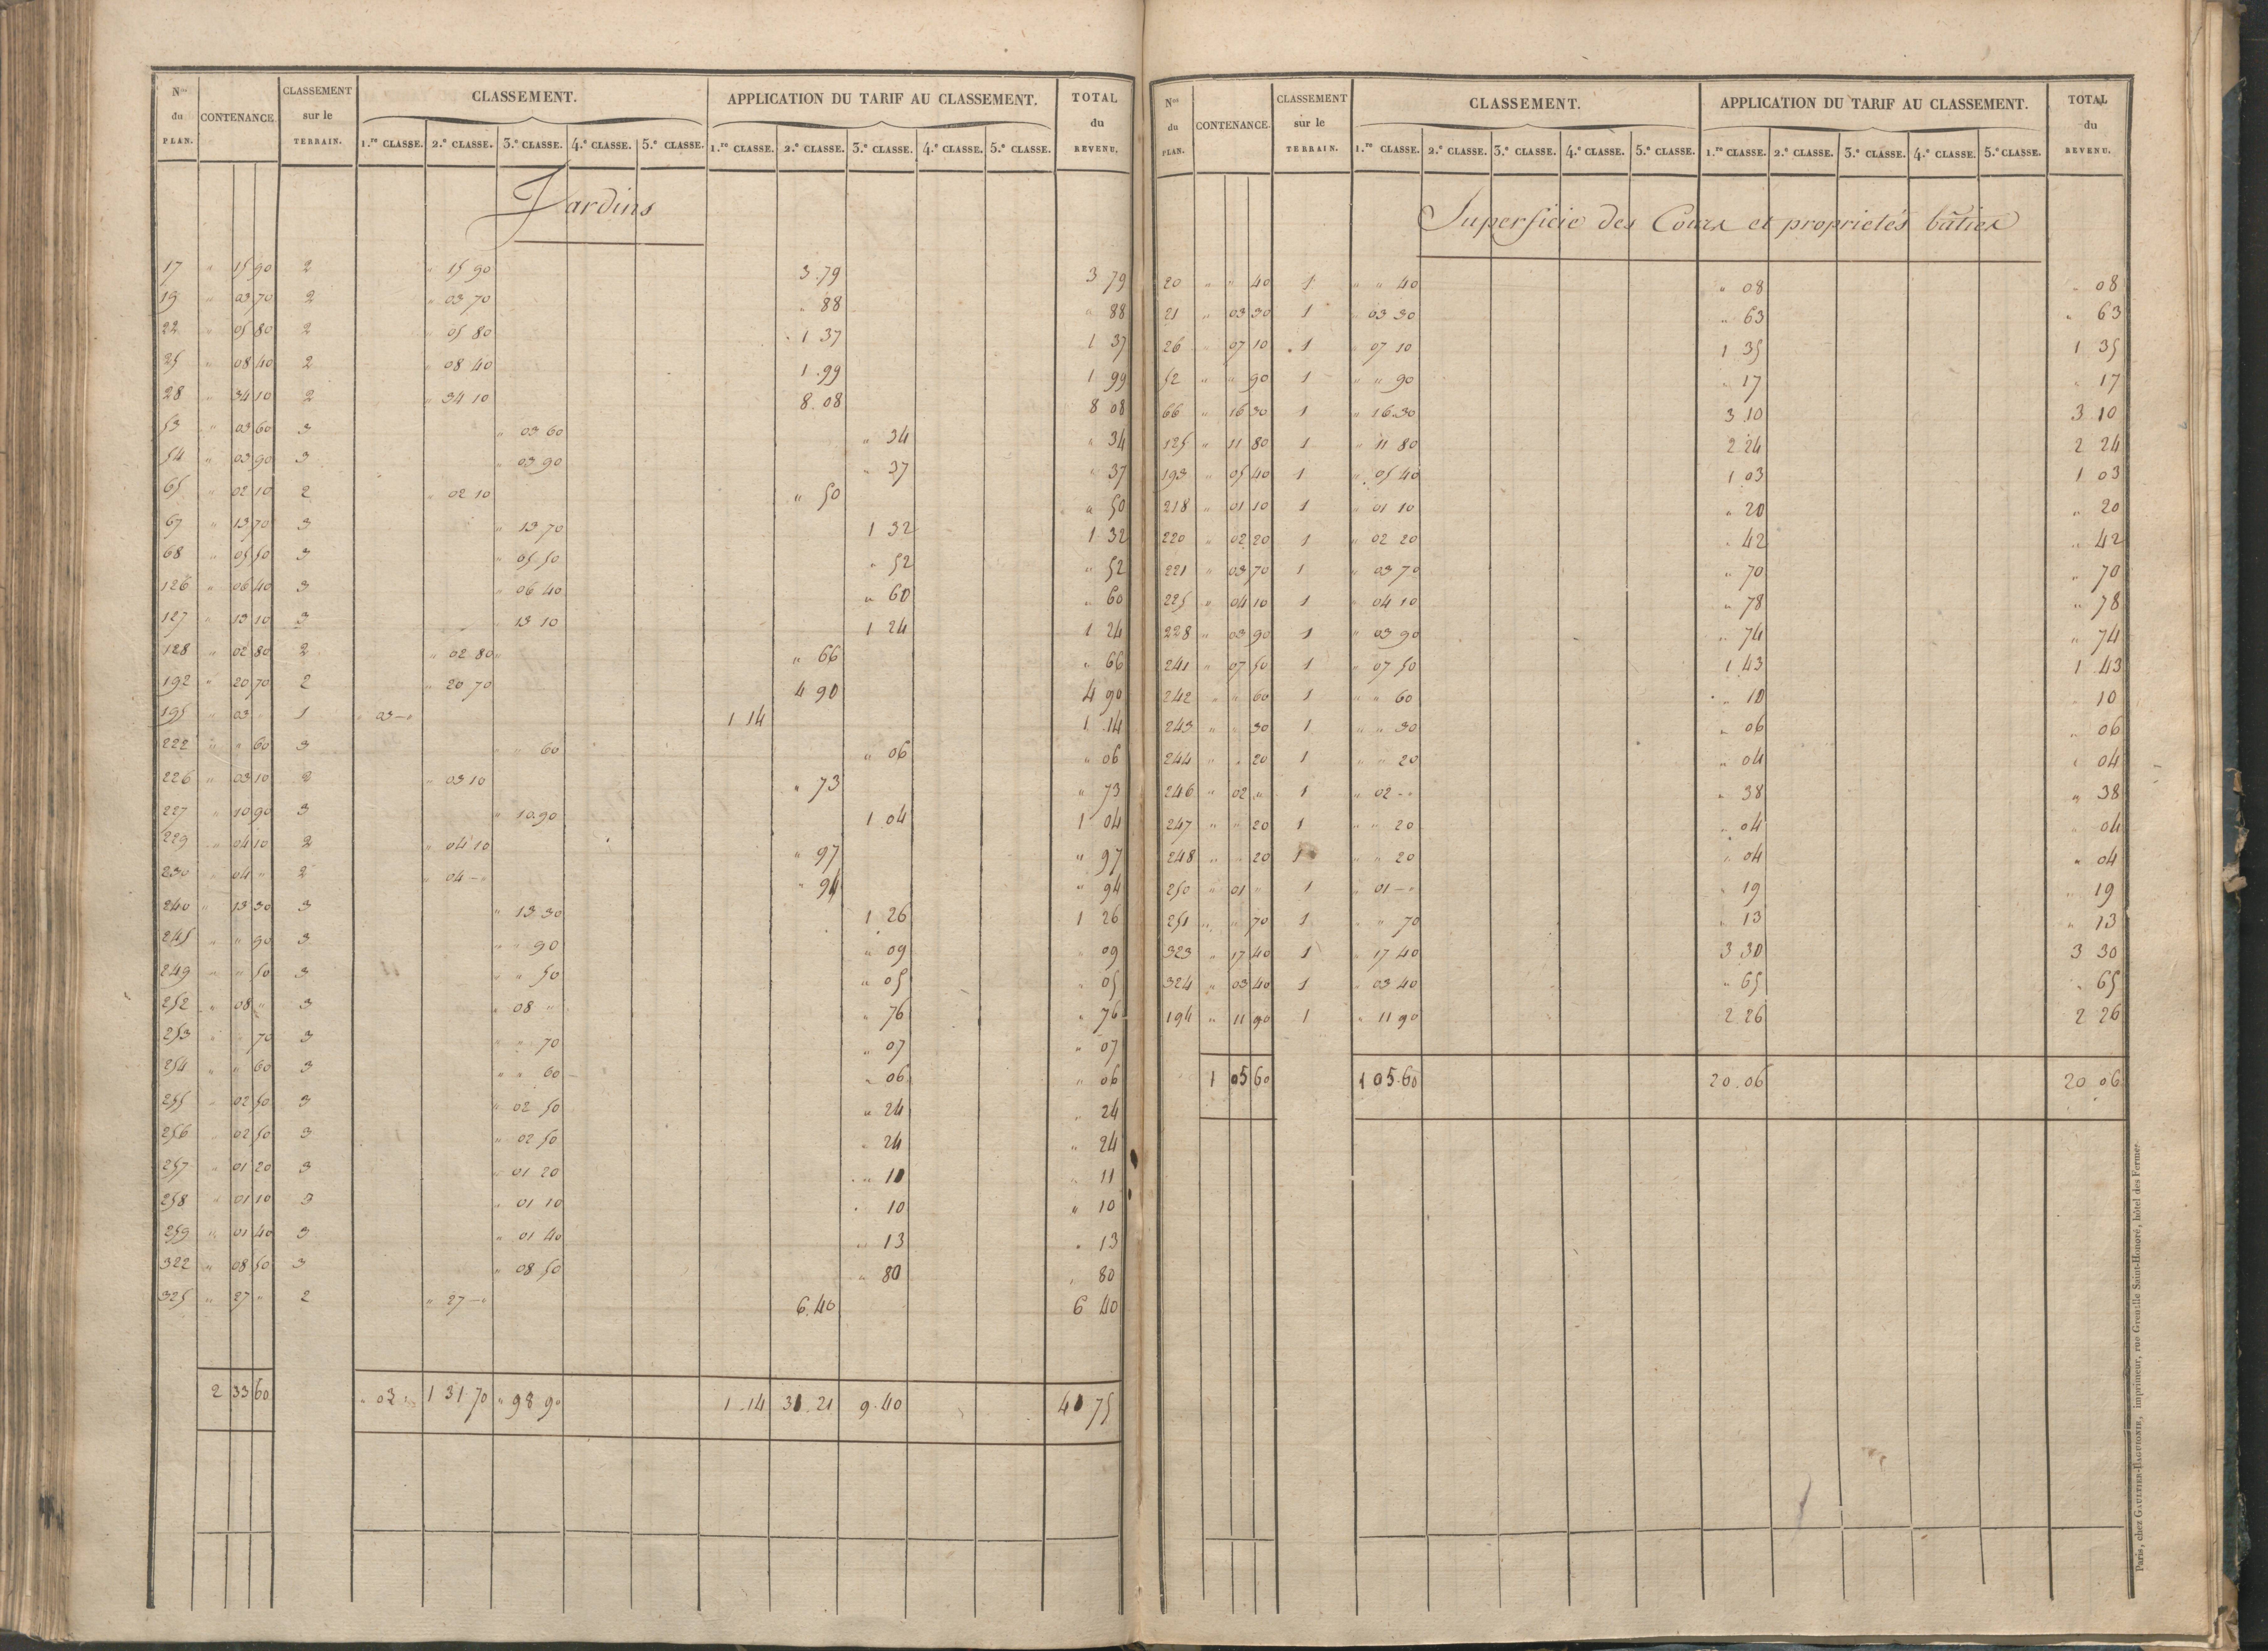 Nos du PLAN. CONTENANCE. CLASSEMENT sur le TERRAIN. CLASSEMENT. APPLICATION DU TARIF AU CLASSEMENT. TOTAL du REVENU.
1.re CLASSE. 2.e CLASSE. 3.e CLASSE. 4.e CLASSE. 5.e CLASSE. 1.re CLASSE. 2.e CLASSE. 3.e CLASSE. 4.e CLASSE. 5.e CLASSE.
Jardins
17 " 15 90 2 " 15 90 3.79 3 79
19 " 03 70 2 " 03 70 " 88 " 88
22 " 05 80 2 " 05 80 1 37 1 37
25 " 08 40 2 " 08 40 1.99 1 99
28 " 34 10 2 " 34 10 8.08 8 08
53 " 03 60 3 " 03 60 " 34 " 34
54 " 03 90 3 " 03 90 " 37 " 37
65 " 02 10 2 " 02 10 " 50 " 50
67 " 13 70 3 " 13 70 1 32 1 32
68 " 05 50 3 " 05 50 " 52 " 52
126 " 06 40 3 " 06 40 " 60 " 60
127 " 13 10 3 " 13 10 1 24 1 24
128 " 02 80 2 " 02 80 " 66 " 66
192 " 20 70 2 " 20 70 4 90 4 90
195 " 03 " 1 " 03 - " 1 14 1 14
222 " " 60 3 " " 60 " 06 " 06
226 " 03 10 2 " 03 10 " 73 " 73
227 " 10 90 3 " 10.90 1 04 1 04
229 " 04 10 2 " 04 10 " 97 " 97
230 " 04 " 2 " 04 - " " 94 " 94
240 " 13 30 3 " 13 30 1 26 1 26
245 " " 90 3 " " 90 " 09 " 09
249 " " 50 3 " " 50 " 05 " 05
252 " 08 " 3 " 08 " " 76 " 76
253 " " 70 3 " " 70 " 07 " 07
254 " " 60 3 " " 60 " 06 " 06
255 " 02 50 3 " 02 50 " 24 " 24
256 " 02 50 3 " 02 50 " 24 " 24
257 " 01 20 3 " 01 20 " " 11
258 " 01 10 3 " 01 10 " 10 " 10
259 " 01 40 3 " 01 40 " 13 " 13
322 " 08 50 3 " 08 50 " 80 " 80
325 " 27 " 2 " 27 - " 6.40 6 40
2 33 60 " 03 " 1 31 70 " 98 90 1.14 31.21 9.40 41 75
Nos du PLAN. CONTENANCE. CLASSEMENT sur le TERRAIN. CLASSEMENT. APPLICATION DU TARIF AU CLASSEMENT. TOTAL du REVENU.
1.re CLASSE. 2.e CLASSE. 3.e CLASSE. 4.e CLASSE. 5.e CLASSE. 1.re CLASSE. 2.e CLASSE. 3.e CLASSE. 4.e CLASSE. 5.e CLASSE.
Superficie des Cours et proprietés bâties
20 " " 40 1 " " 40 " 08 " 08
21 " 03 30 1 " 03 30 " 63 " 63
26 " 07 10 1 " 07 10 1 35 1 35
52 " " 90 1 " " 90 " 17 " 17
66 " 16 30 1 " 16.30 3 10 3 10
125 " 11 80 1 " 11 80 2 24 2 24
193 " 05 40 1 " 05 40 1 03 1 03
218 " 01 10 1 " 01 10 " 20 " 20
220 " 02 20 1 " 02 20 " 42 " 42
221 " 03 70 1 " 03 70 " 70 " 70
225 " 04 10 1 " 04 10 " 78 " 78
228 " 03 90 1 " 03 90 " 74 " 74
241 " 07 50 1 " 07 50 1 43 1 43
242 " " 60 1 " " 60 " 10 " 10
243 " " 30 1 " " 30 " 06 " 06
244 " " 20 1 " " 20 " 04 " 04
246 " 02 " 1 " 02 - " " 38 " 38
247 " " 20 1 " " 20 " 04 " 04
248 " " 20 1 " " 20 " 04 " 04
250 " 01 " 1 " 01 - " " 19 " 19
251 " " 70 1 " " 70 " 13 " 13
323 " 17 40 1 " 17 40 3 30 3 30
324 " 03 40 1 " 03 40 " 65 " 65
194 " 11 90 1 " 11 90 2 26 2 26
1 05 60 1 05.60 20.06 20 06
Paris, chez GAULTIER-LAGUIONIE, imprimeur, rue Grenelle Saint-Honoré, hôtel des Fermes